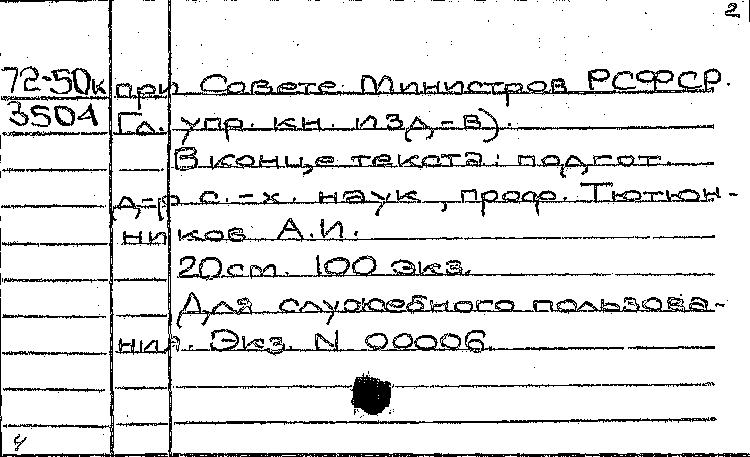 2
72-50к при Совете Министров РСФСР.
3504 Гл. упр. кн. изд-в).
В конце текста: подгот.
д-р с.-х. наук, проф. Тютюн-
ников А.И.
20см. 100 экз.
Для служебного пользова-
ния. Экз. N 00006.